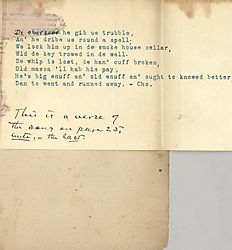 De oberseer he gib us trubble,
An' he dribe us round a spell.
We lock him up in de smoke house cellar,
Wid de key trowed in de well.
De whip is lost, de han' cuff broken,
Old massa 'll hab his pay,
He's big enuff an' old enuff an' ought to knowed better
Dan to went and runned away. - Cho.
This is a verse of
the song on page 25,
note, - the last.